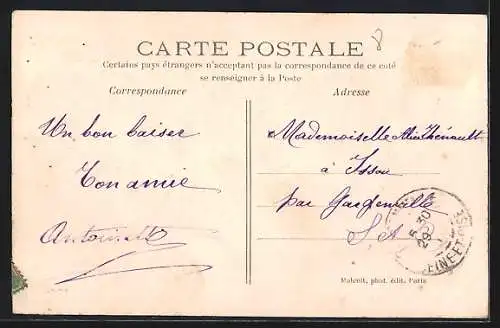 CARTE POSTALE
Certains pays étrangers n'acceptent pas la correspondance de ce coté
se renseigner à la Poste
Correspondance
Adresse
Un bon baiser
Ton amie
Antoinette
Mademoiselle Thénault
à Issou
par Gargenville
S. &
5 30
29
EINE-ET-OISE
Malcuit, phot. édit. Paris
8